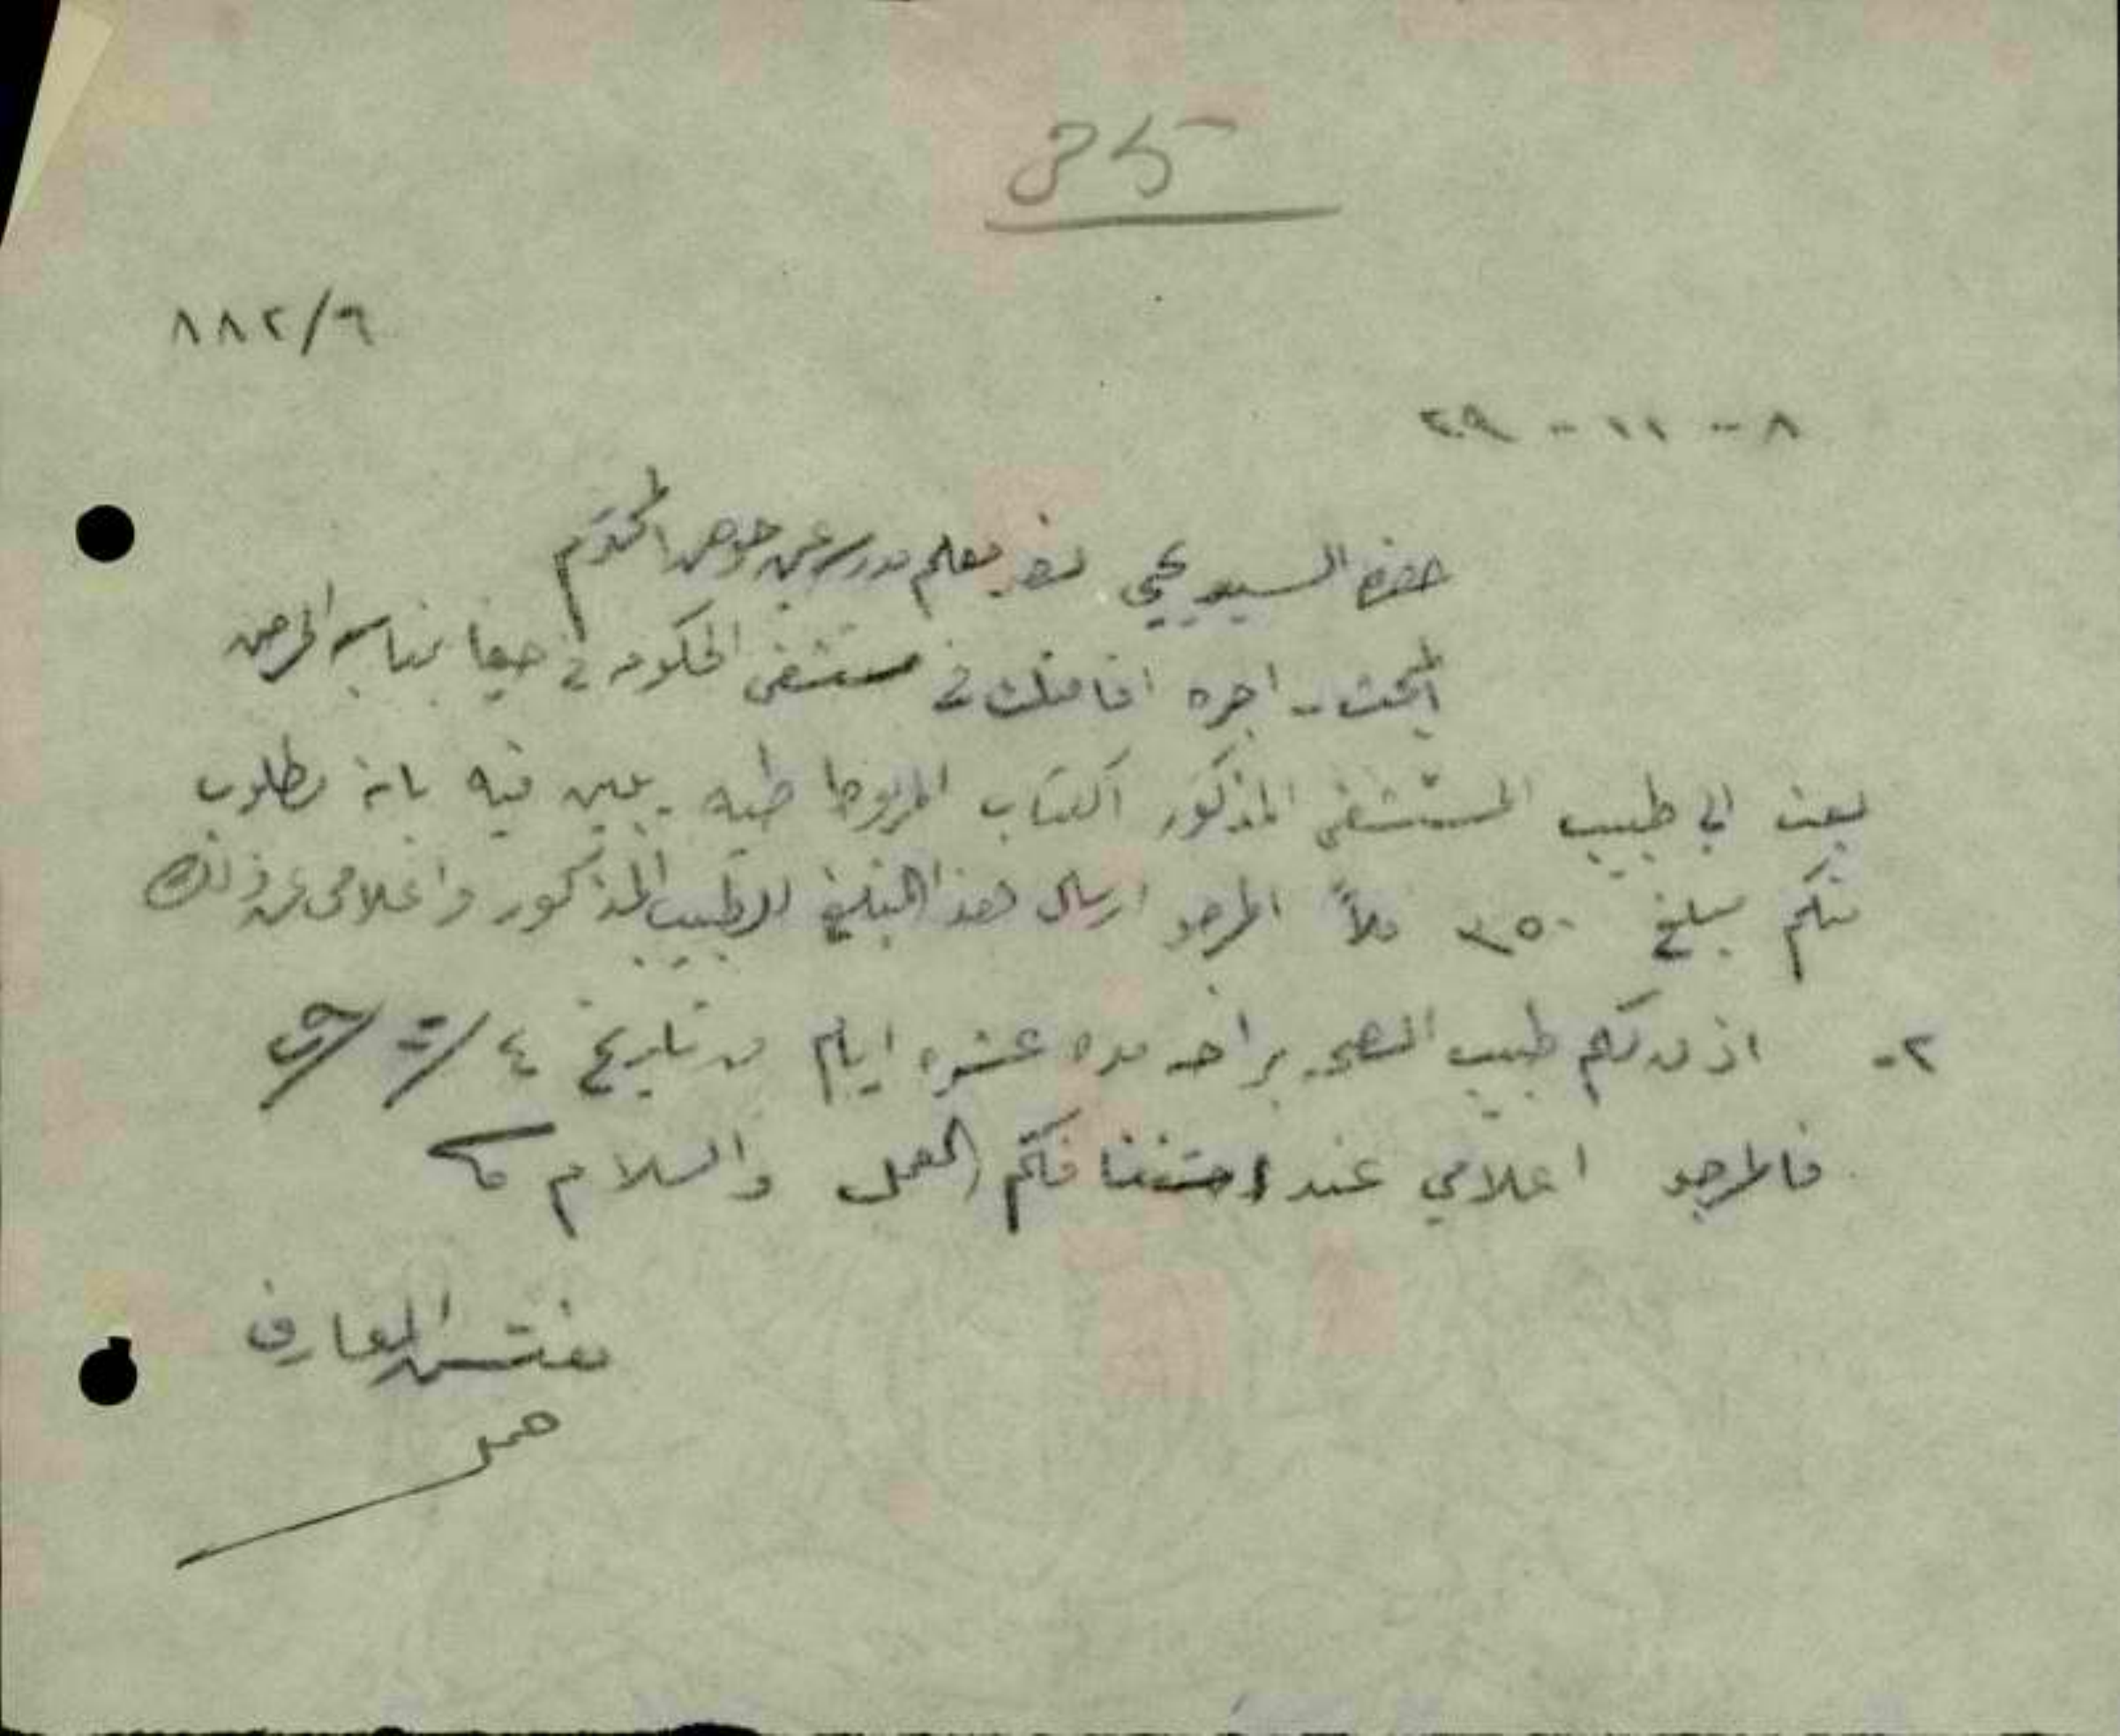 35
٨٨٢/٦
٨ - ١١ - ٢٩
حضرة السيد يحيى نصر معلم مدرسة عين حوض المحترم
البحث - اجرة اقامتك في مستشفى الحكومة في حيفا بمناسبة المرض
بعث الي طبيب المستشفى المذكور الكتاب المربوط طيه يبين فيه بانه مطلوب
منكم مبلغ ٣٥٠ ملاً المرجو ارسال هذا المبلغ للطبيب المذكور واعلامي عن ذلك
٢- اذن لكم طبيب الصحة براحة مدة عشرة ايام من تاريخ ٤/١١/
فالمرجو اعلامي عند استئنافكم العمل والسلام
مفتش المعارف